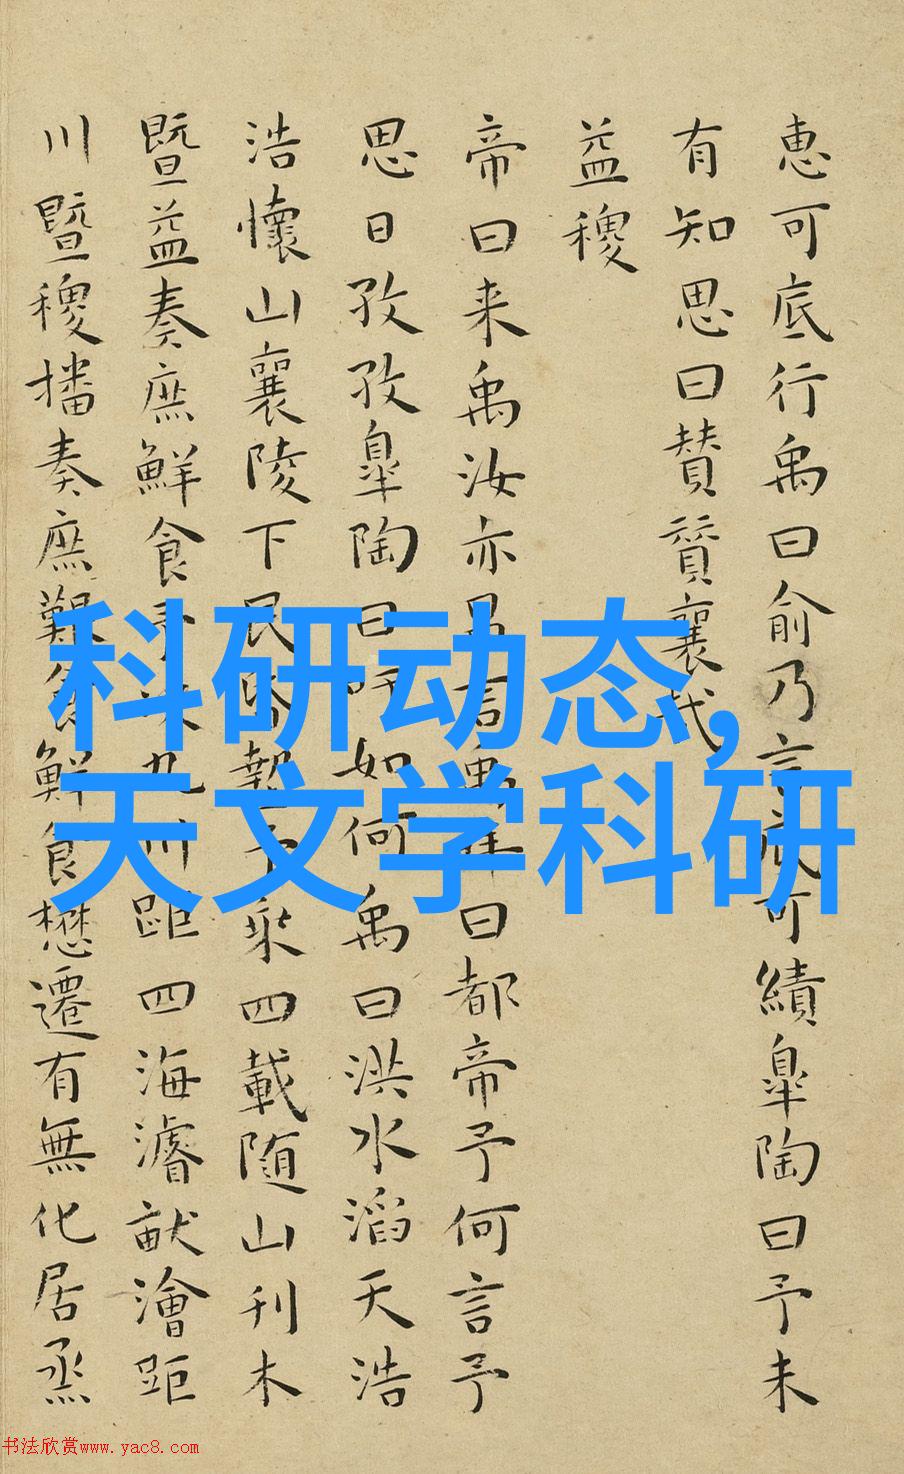 恵可底行禹曰俞乃言底可績皐陶曰予未
有知思曰賛賛襄哉
益稷
帝曰来禹汝亦昌言禹拜曰都帝予何言予
思日孜孜皐陶曰吁如何禹曰洪水滔天浩
浩懷山襄陵下民昏墊予乗四載随山刊木
暨益奏庶鮮食予决九川距四海濬畎澮距
川暨稷播奏庶艱食鮮食懋遷有無化居烝
科研动态,
天文学科研
书法欣赏www.yac8.com